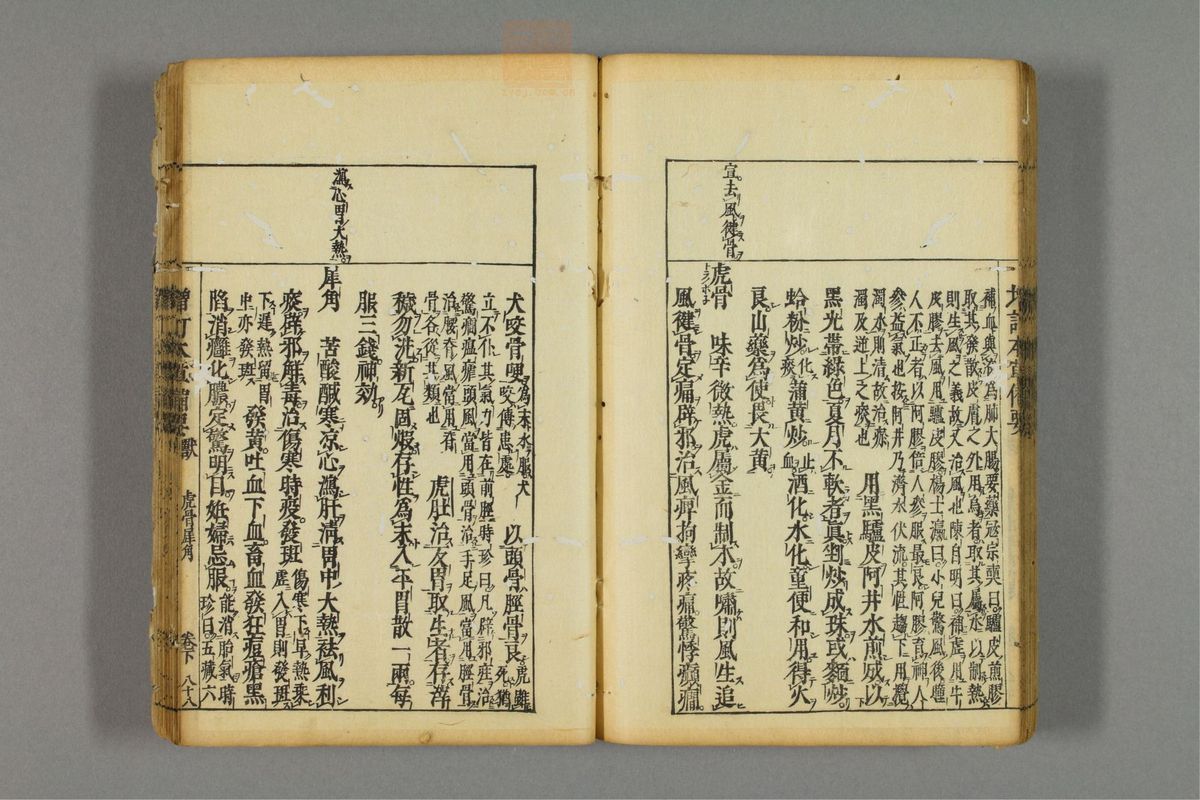 宜去風徤骨
補血與液爲肺大腸要藥寇宗奭曰驢皮煎膠
取其發散皮膚之外用烏者取其屬水以制熱
則生風之義故又治風也陳自明曰補虛用牛
皮膠去風用驢皮膠楊士瀛曰小兒驚風後瞳
人不正者以阿膠倍人參服最良阿膠育神人
參益氣也按阿井乃濟水伏流其性趨下用攪
濁水則清故治瘀
濁及逆上之痰也
用黑驢皮阿井水煎成以
黑光帶綠色夏月不軟者真剉炒成珠或麵炒
蛤粉炒化痰蒲黃炒止血酒化水化童便和用得火
良山藥爲使畏大黃
虎骨
トラノホネ
味辛微熱虎屬金而制水故嘯則風生追
風徤骨定痛辟邪治風痺拘攣疼痛驚悸癲癎
瀉心胃大熱
犬咬骨哽爲末水服犬咬傅患處以頭骨脛骨良虎雖死猶
立不仆其氣力皆在前脛時珍曰凡辟邪疰治
驚癎瘟瘧頭風當用頭骨治手足風當用脛骨
治腰脊風當用脊
骨各從其類也
虎肚治反胃取生者存滓
穢勿洗新瓦固煅存性爲末入平胃散一兩每
服三錢神効
犀角
苦酸醎寒凉心瀉肝淸胃中大熱祛風利
痰辟邪解毒治傷寒時疫發斑傷寒下早熱乘虛入胃則發斑
下遲熱留胃中亦發斑發黃吐血下血畜血發狂痘瘡黑
陷消癰化膿定驚明目妊婦忌服能消胎氣時珍曰五藏六
增訂本草備要
獸
虎骨犀角
卷下
八十八